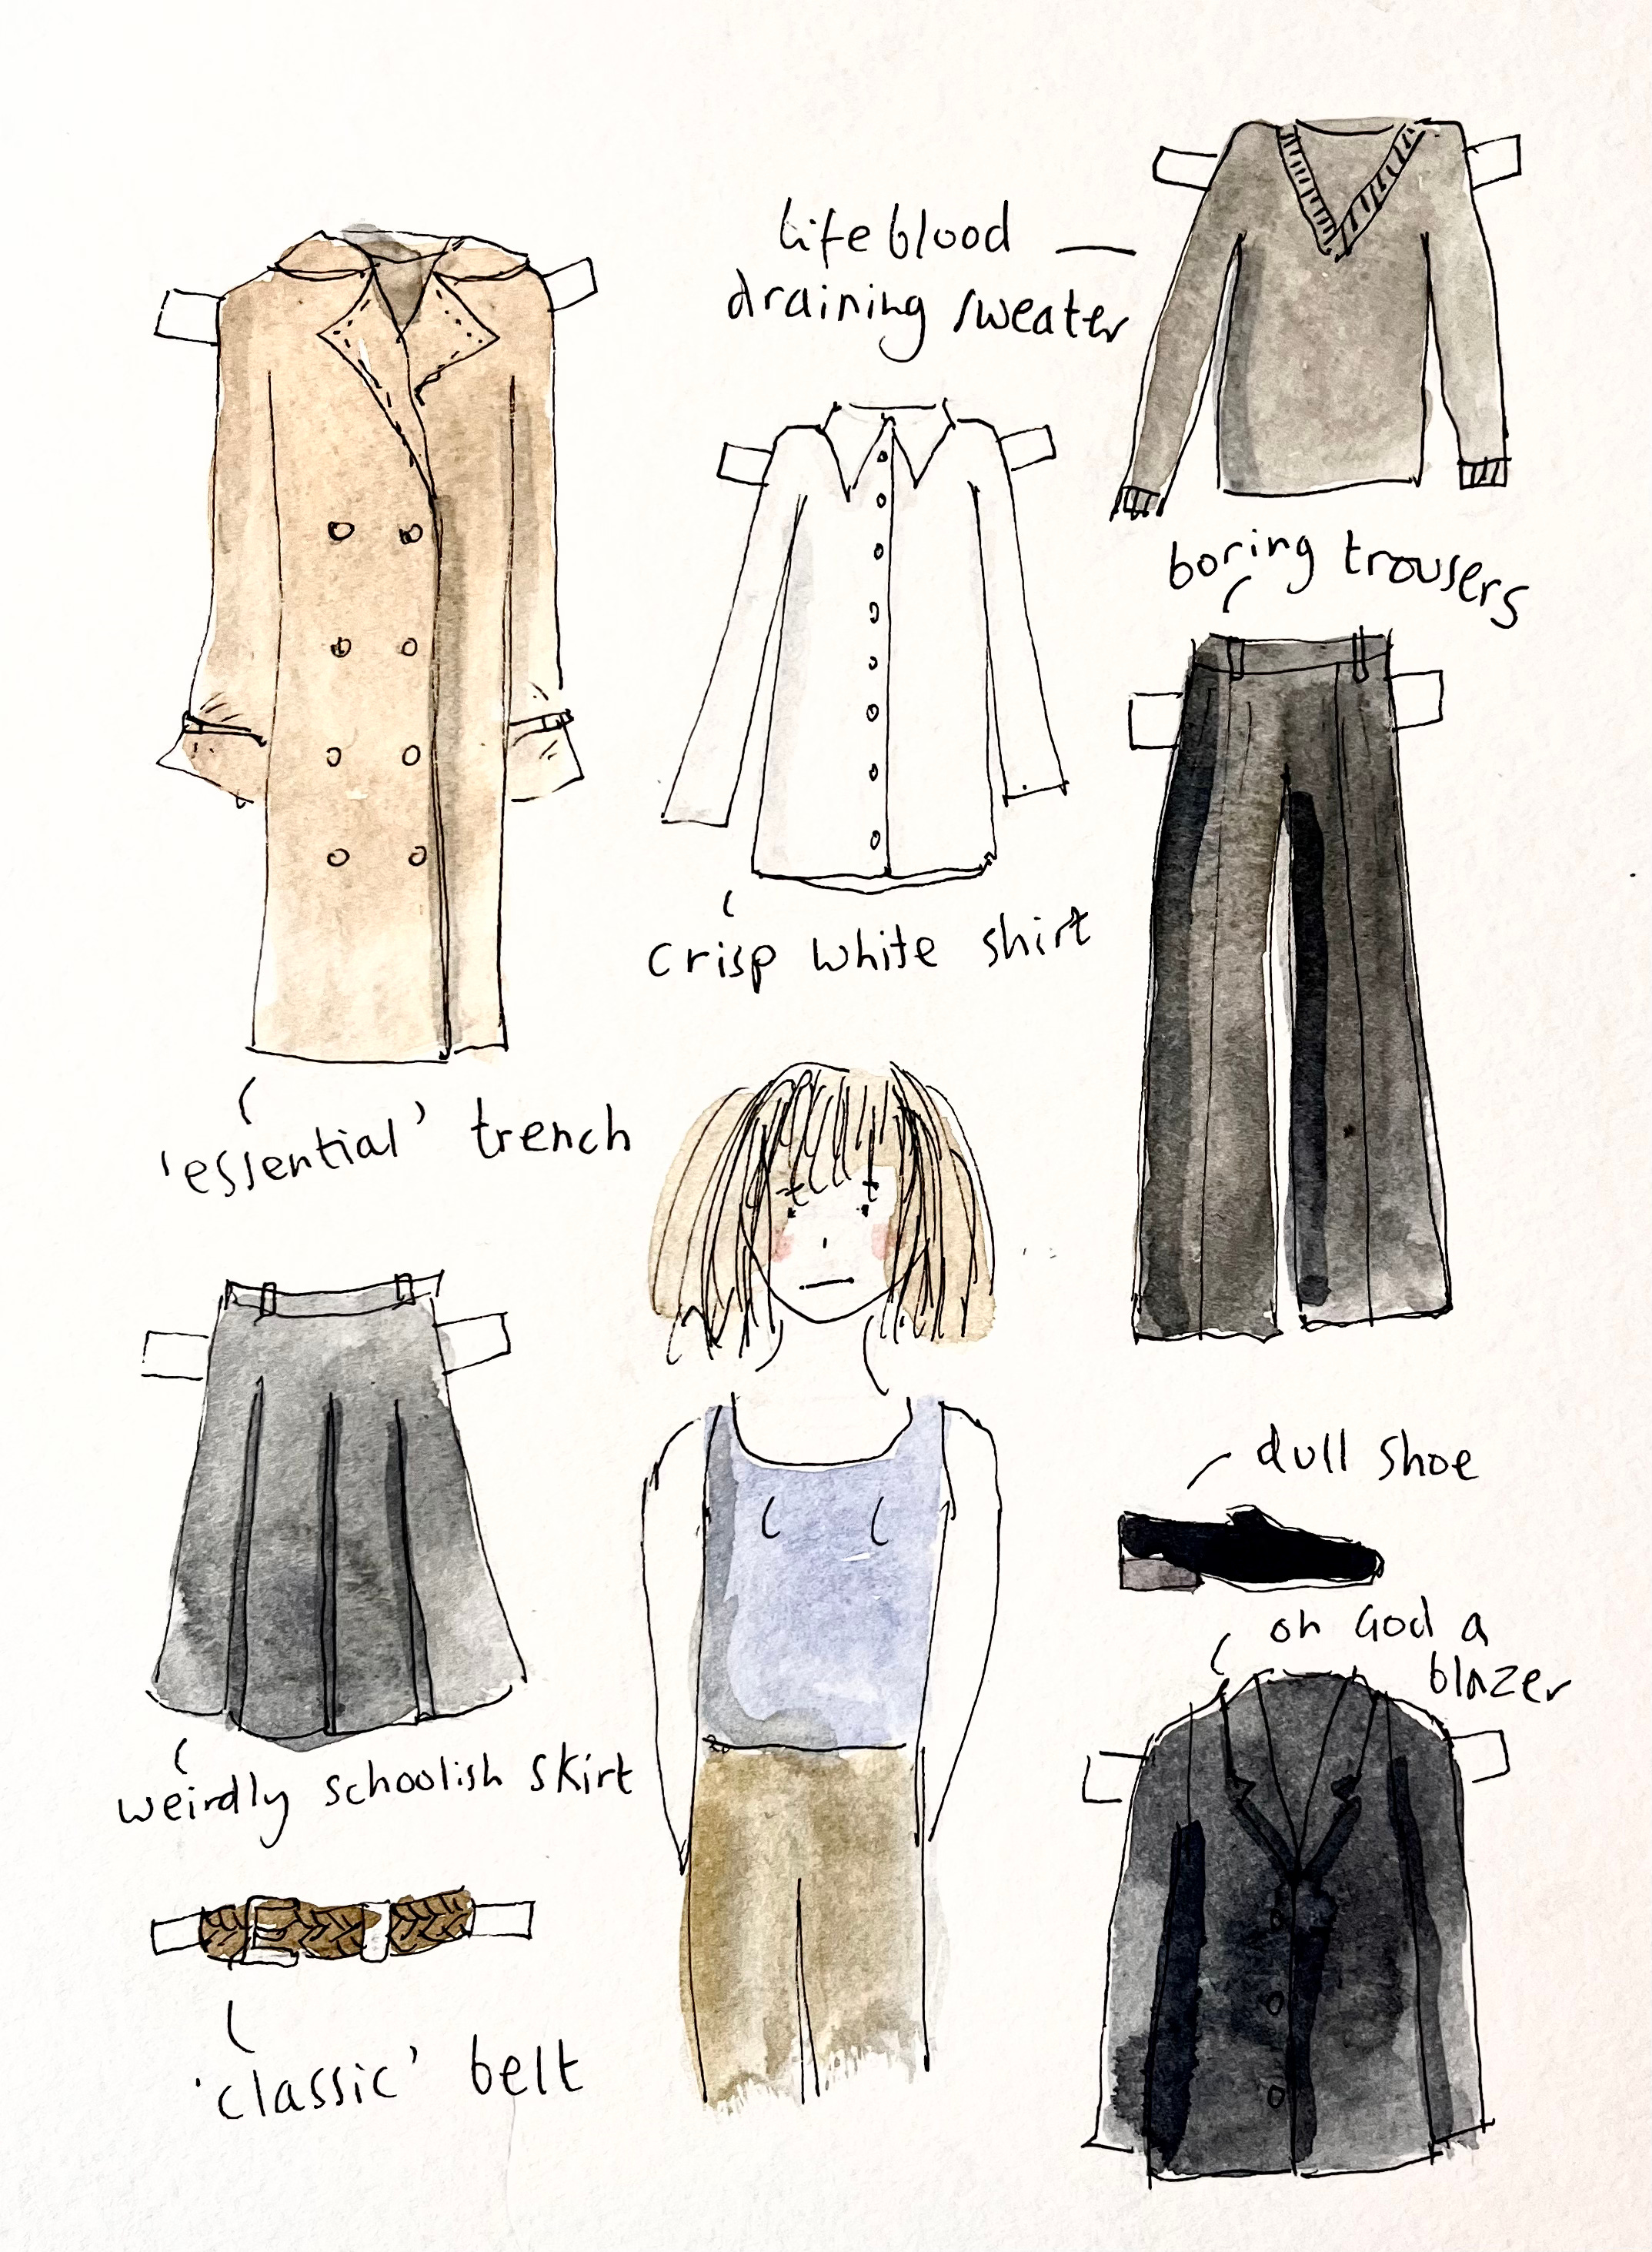 life blood
draining sweater
boring trousers
crisp white shirt
'essential' trench
dull shoe
oh God a
blazer
weirdly schoolish skirt
'classic' belt